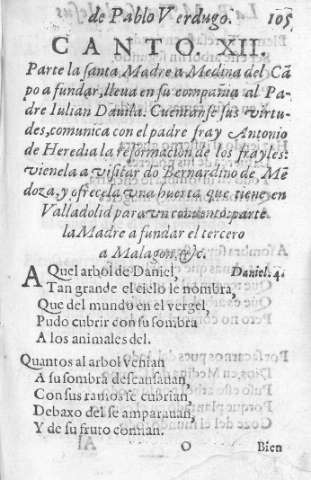 de Pablo Verdugo. 105
CANTO. XII.
Parte la santa Madre a Medina del Cã
po a fundar, lleua en su compañia al Pa
dre Iulian Dauila. Cuentanse sus virtu-
des, comunica con el padre fray Antonio
de Heredia la reformacion de los frayles:
vienela a visitar dõ Bernardino de Mẽ
doza, y ofrecela vna huerta que tiene en
Valladolid para vn conuento: parte
la Madre a fundar el tercero
a Malagon, &c.
AQuel arbol de Daniel, Daniel. 4.
Tan grande el cielo le nombra,
Que del mundo en el vergel,
Pudo cubrir con su sombra
A los animales del.
Quantos al arbol venian
A su sombra descansauan,
Con sus ramos se cubrian,
Debaxo del se amparauan,
Y de su fruto comian.
O Bien